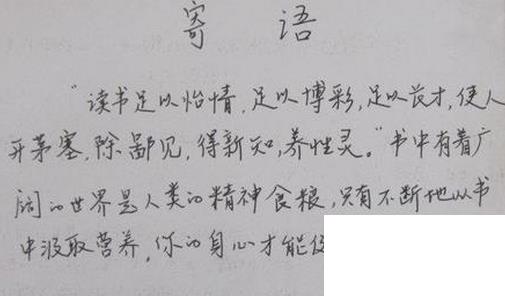 寄语
"读书足以怡情,足以博彩,足以长才,使人
开茅塞,除鄙见,得新知,养性灵。"书中有着广
阔的世界是人类的精神食粮,只有不断地从书
中汲取营养,你的身心才能